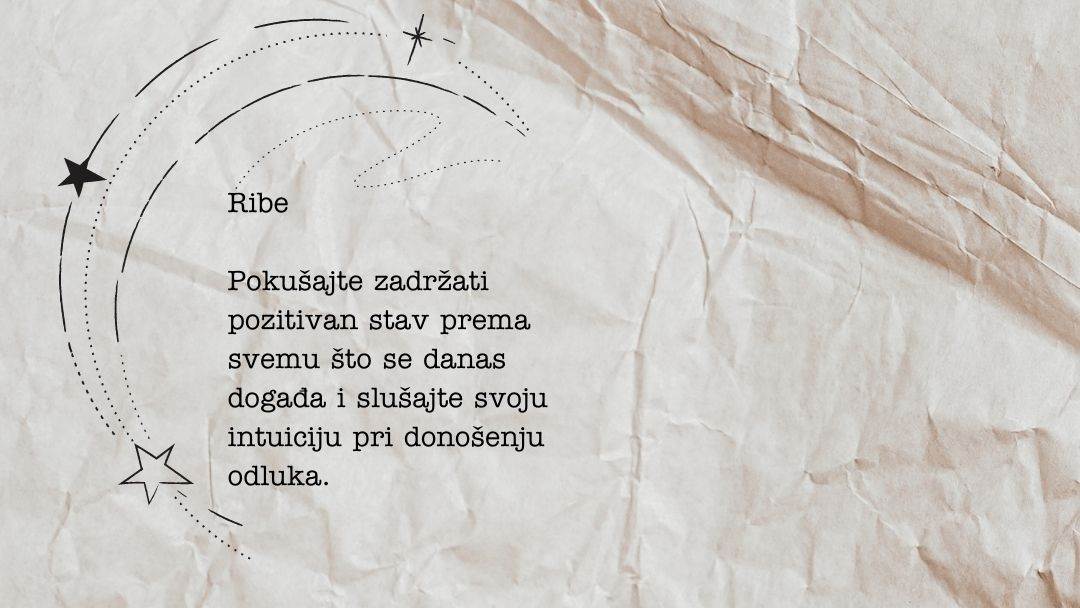 Ribe
Pokušajte zadržati
pozitivan stav prema
svemu što se danas
događa i slušajte svoju
intuiciju pri donošenju
odluka.